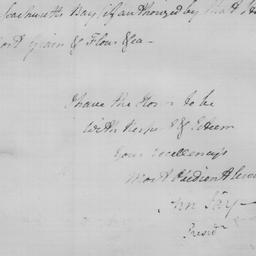 sachusetts Bay, (if authorized by that
port Grain & Flour &ca—
I have the Honor to be
With Respect & Esteem
Your Excellency's
Most Obedient
John Jay
Presidt